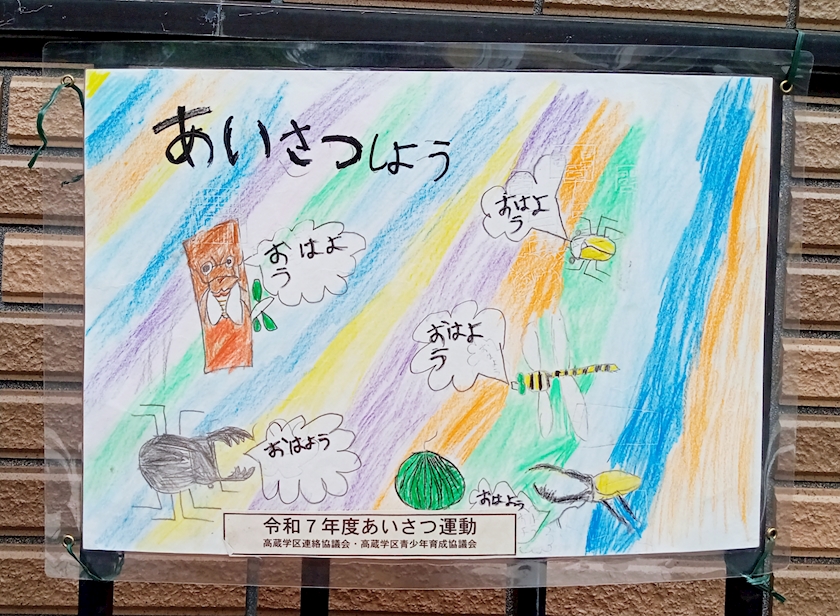 あいさつしよう
おはよ
う
おはよ
う
おはよ
う
おはよう
おはよう
令和7年度あいさつ運動
高蔵学区連絡協議会・高蔵学区青少年育成協議会